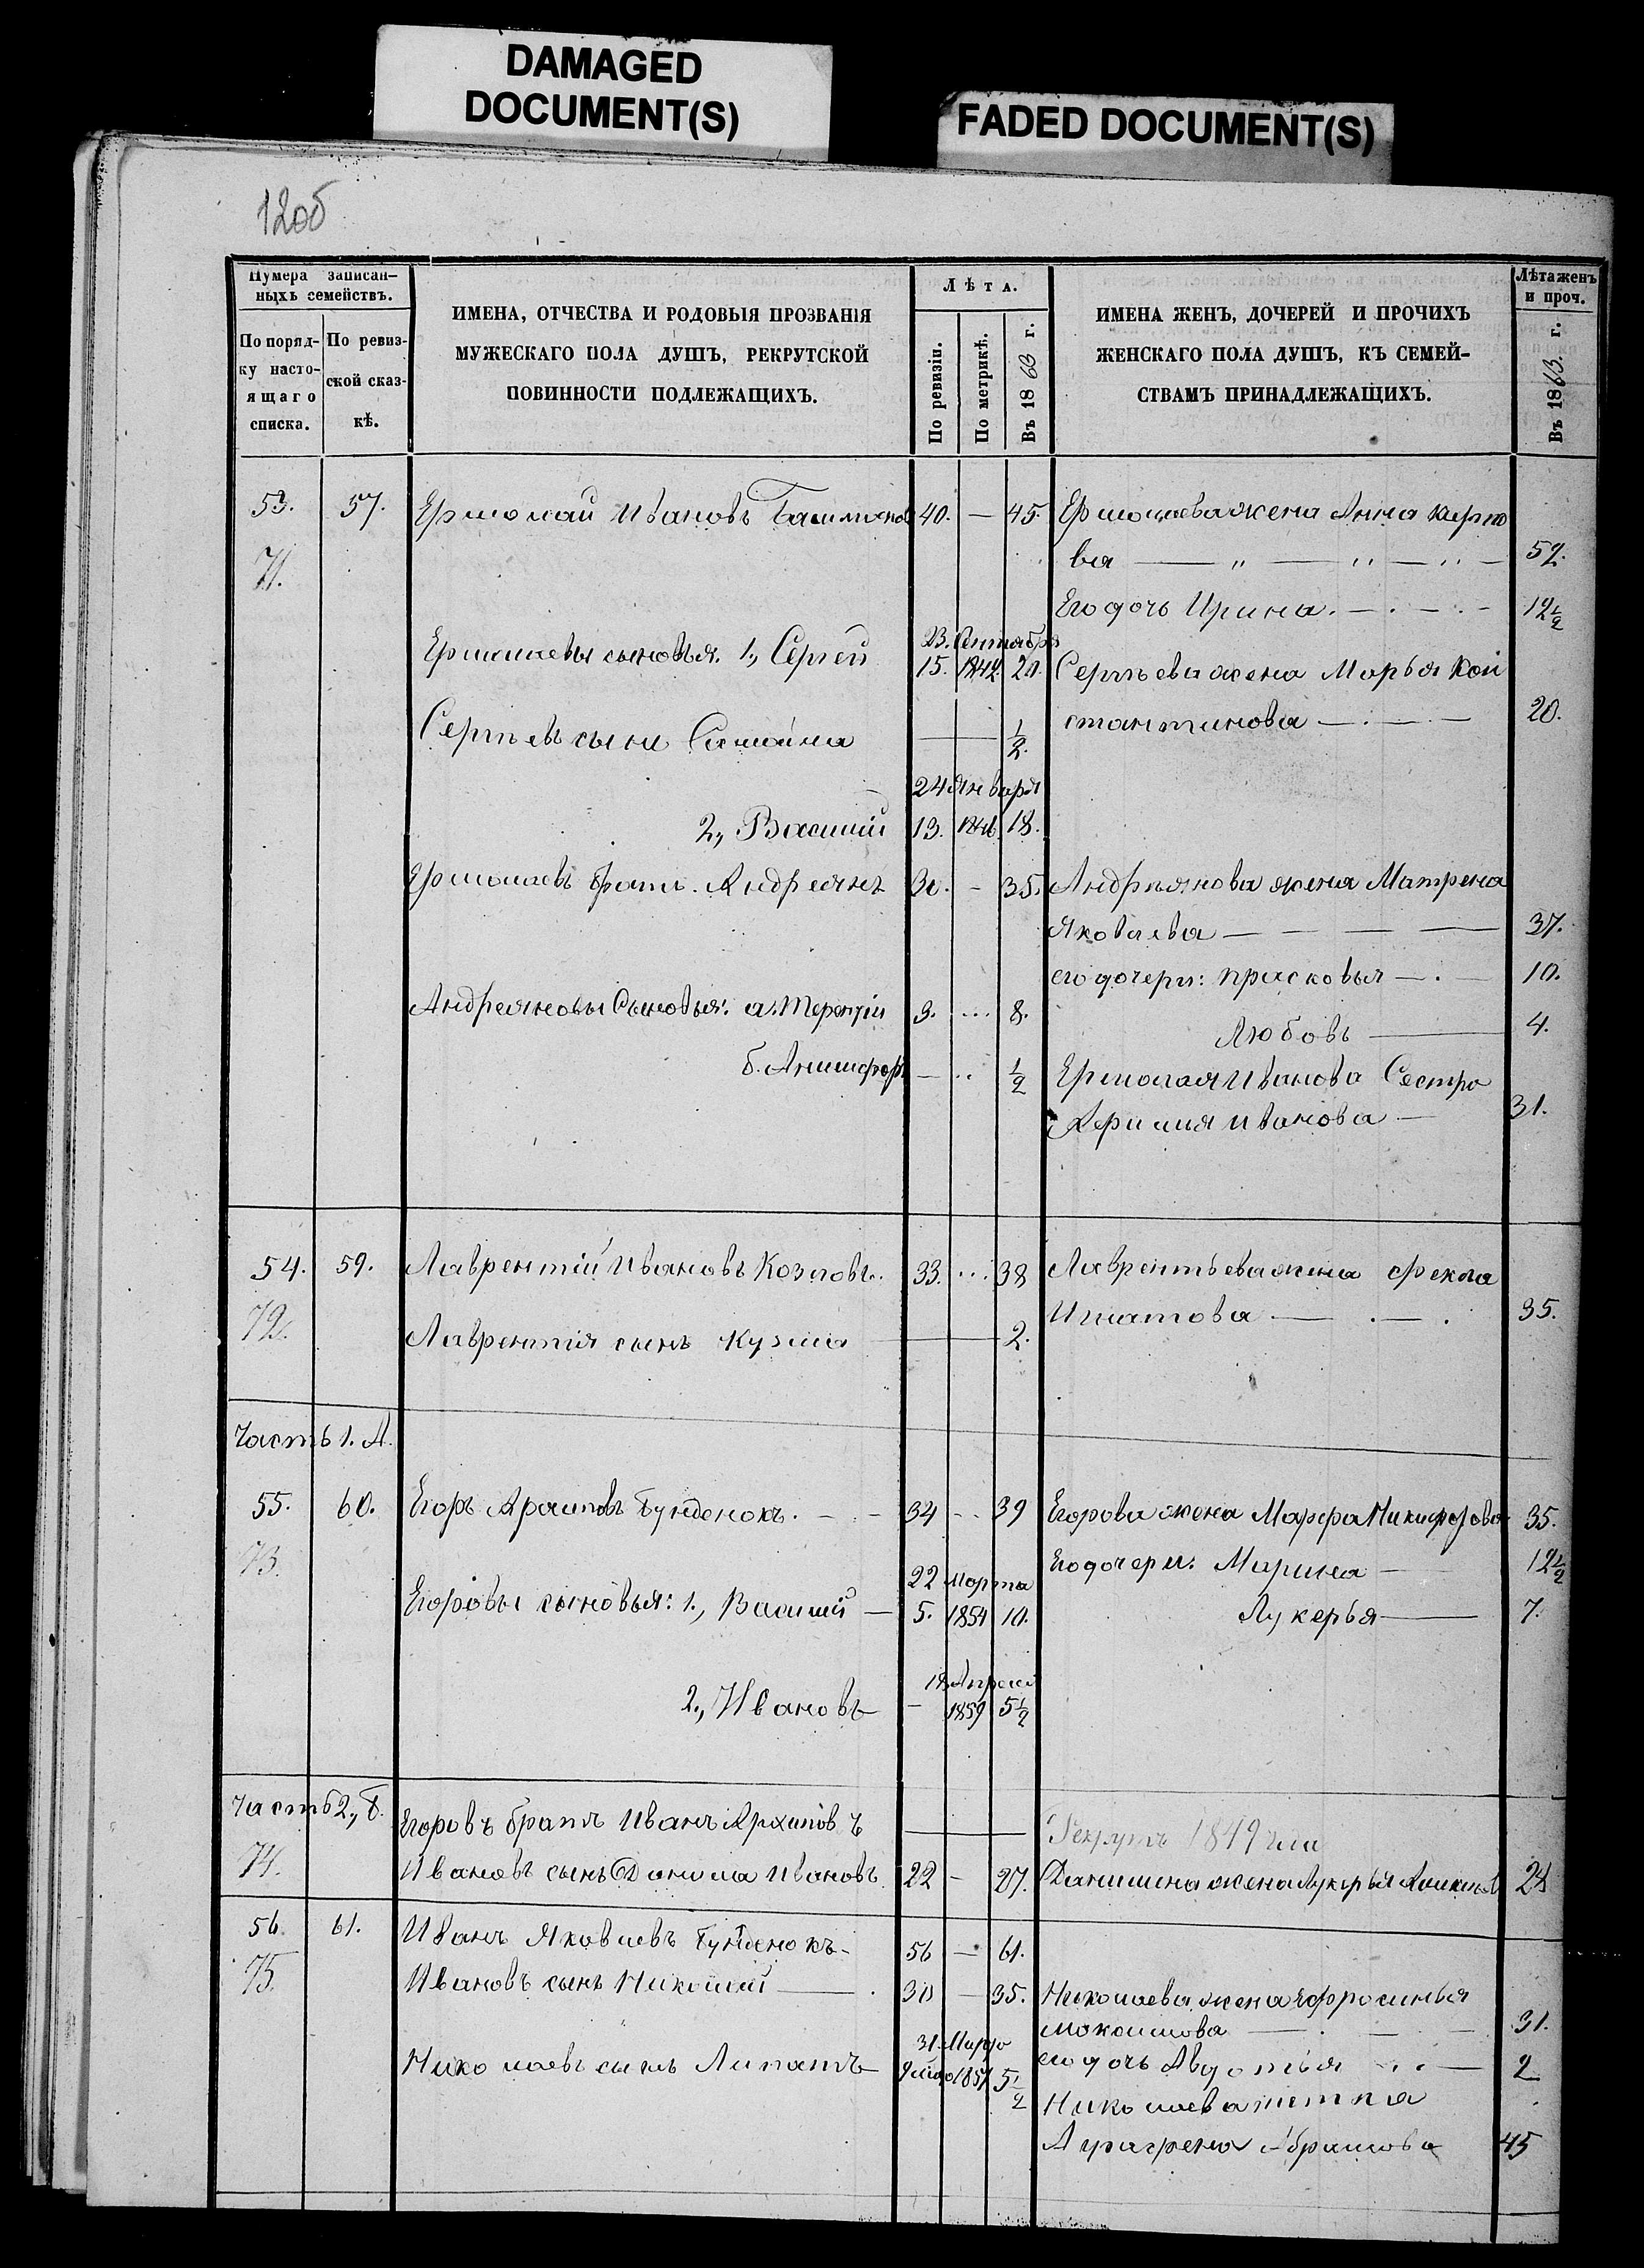 DAMAGED
DOCUMENT(S)
FADED DOCUMENT(S)
12об
Нумера записан-
ныхъ семействъ.
По поряд-
ку насто-
ящаго
списка.
По ревиз-
ской сказ-
кѣ.
ИМЕНА, ОТЧЕСТВА И РОДОВЫЯ ПРОЗВАНІЯ
МУЖЕСКАГО ПОЛА ДУШЪ, РЕКРУТСКОЙ
ПОВИННОСТИ ПОДЛЕЖАЩИХЪ.
Лѣта.
По ревизіи.
По метрикѣ.
Въ 1863 г.
ИМЕНА ЖЕНЪ, ДОЧЕРЕЙ И ПРОЧИХЪ
ЖЕНСКАГО ПОЛА ДУШЪ, КЪ СЕМЕЙ-
СТВАМЪ ПРИНАДЛЕЖАЩИХЪ.
Лѣта женъ
и проч.
Въ 1863. г.
53. 57. Ермолай Ивановъ 40. — 45. Ермолаева жена Анна Карпо
71. ва — " — " — " — 52.
Его дочь Ирина. — 12½
Ермолаевы сыновья. 1., Сергей 23. Сентября
15. 1842 20. Сергѣева жена Марья Кон
стантинова — 20.
Сергѣевъ сынъ — ½
24 Января
2., Василий 13. 1846 18.
Ермолаевъ братъ. Андреянъ 30. - 35. Андрьянова жена Матрена
Яковлева — 37.
его дочери: Прасковья — 10.
Андреяновы Сыновья: а. Терентiй 3. ... 8.
Любовь — 4.
б. Анинфор. — .. ½ Ермолая Иванова Сестра
Иванова — 31.
54. 59. Лаврентiй Ивановъ Козловъ. 33. ... 38 Лаврентьева жена Фекла
72. Игнатова — 35.
Лаврентiя сынъ Кузма — 2.
Часть 1. А.
55. 60. Егоръ Архиповъ Бунденокъ. 34 - 39 Егорова жена Марфа Никифорова 35.
73. Его дочери. Марина — 12½
22 Марта
Егоровы сыновья: 1., Василий — 5. 1854 10. Лукерья — 7.
18 Апреля
2., Ивановъ — 1859 5½
Часть 2., б.
Егоровъ братъ Иванъ Архиповъ — Рекрутъ 1849 года
74. Ивановъ сынъ Данила Ивановъ. 22 - 27. Данилина жена Лукерья 24
56. 61. Иванъ Яковлевъ Бунденокъ - 56 — 61.
75. Ивановъ сынъ Николай — 30 — 35. Николаева жена Ефросинья
Максимова — 31.
31. Марта
Николаевъ сынъ Липатъ 1857 5½ его дочь Авдотья — 2
Николаева тетка
Аграфена Абрамова 45